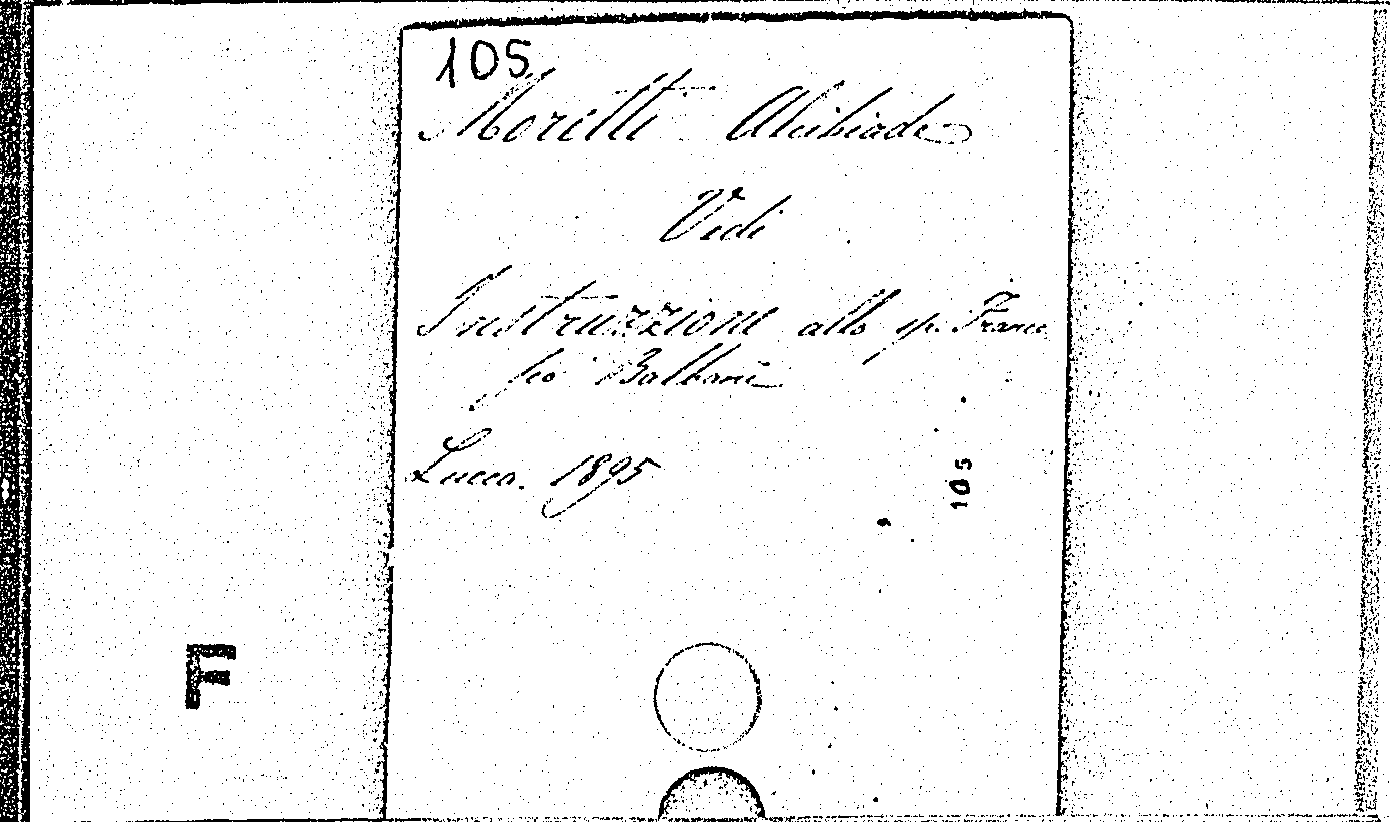 105
Moretti Alcibiade
Vedi
Instruzzione allo sp. France
sco Balbani
Lucca. 1895
105
F